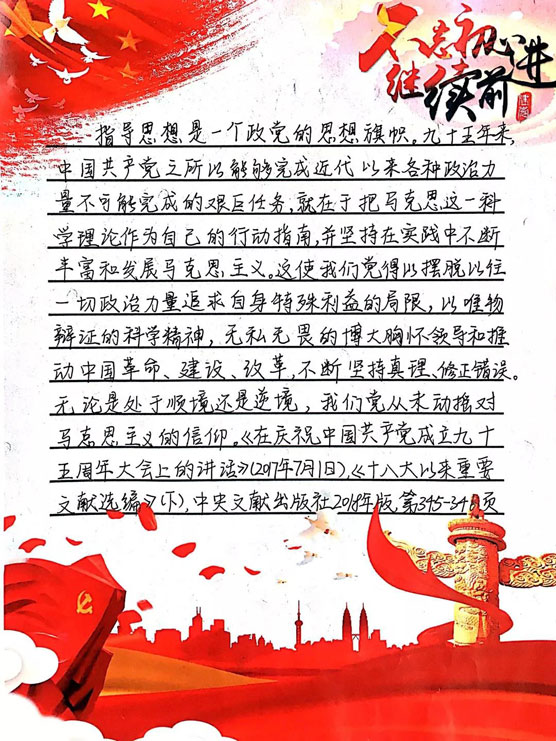 不忘初心
继续前进
指导思想是一个政党的思想旗帜。九十五年来,
中国共产党之所以能够完成近代以来各种政治力
量不可能完成的艰巨任务,就在于把马克思这一科
学理论作为自己的行动指南,并坚持在实践中不断
丰富和发展马克思主义。这使我们党得以摆脱以往
一切政治力量追求自身特殊利益的局限,以唯物
辩证的科学精神,无私无畏的博大胸怀领导和推
动中国革命、建设、改革,不断坚持真理、修正错误。
无论是处于顺境还是逆境,我们党从未动摇对
马克思主义的信仰。《在庆祝中国共产党成立九十
五周年大会上的讲话》(2017年7月1日),《十八大以来重要
文献选编》(下),中央文献出版社2018年版,第页